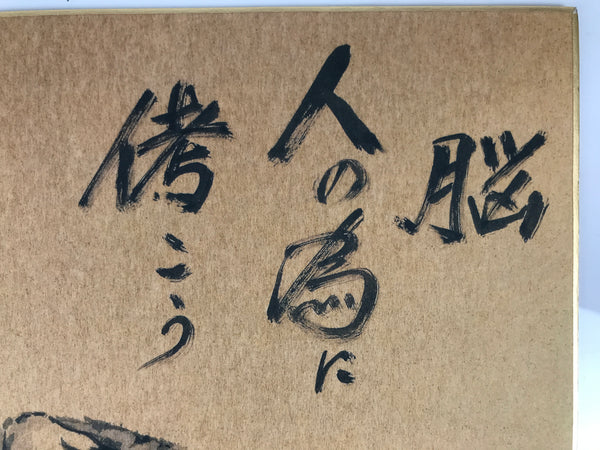 脳
人の為に
働こう